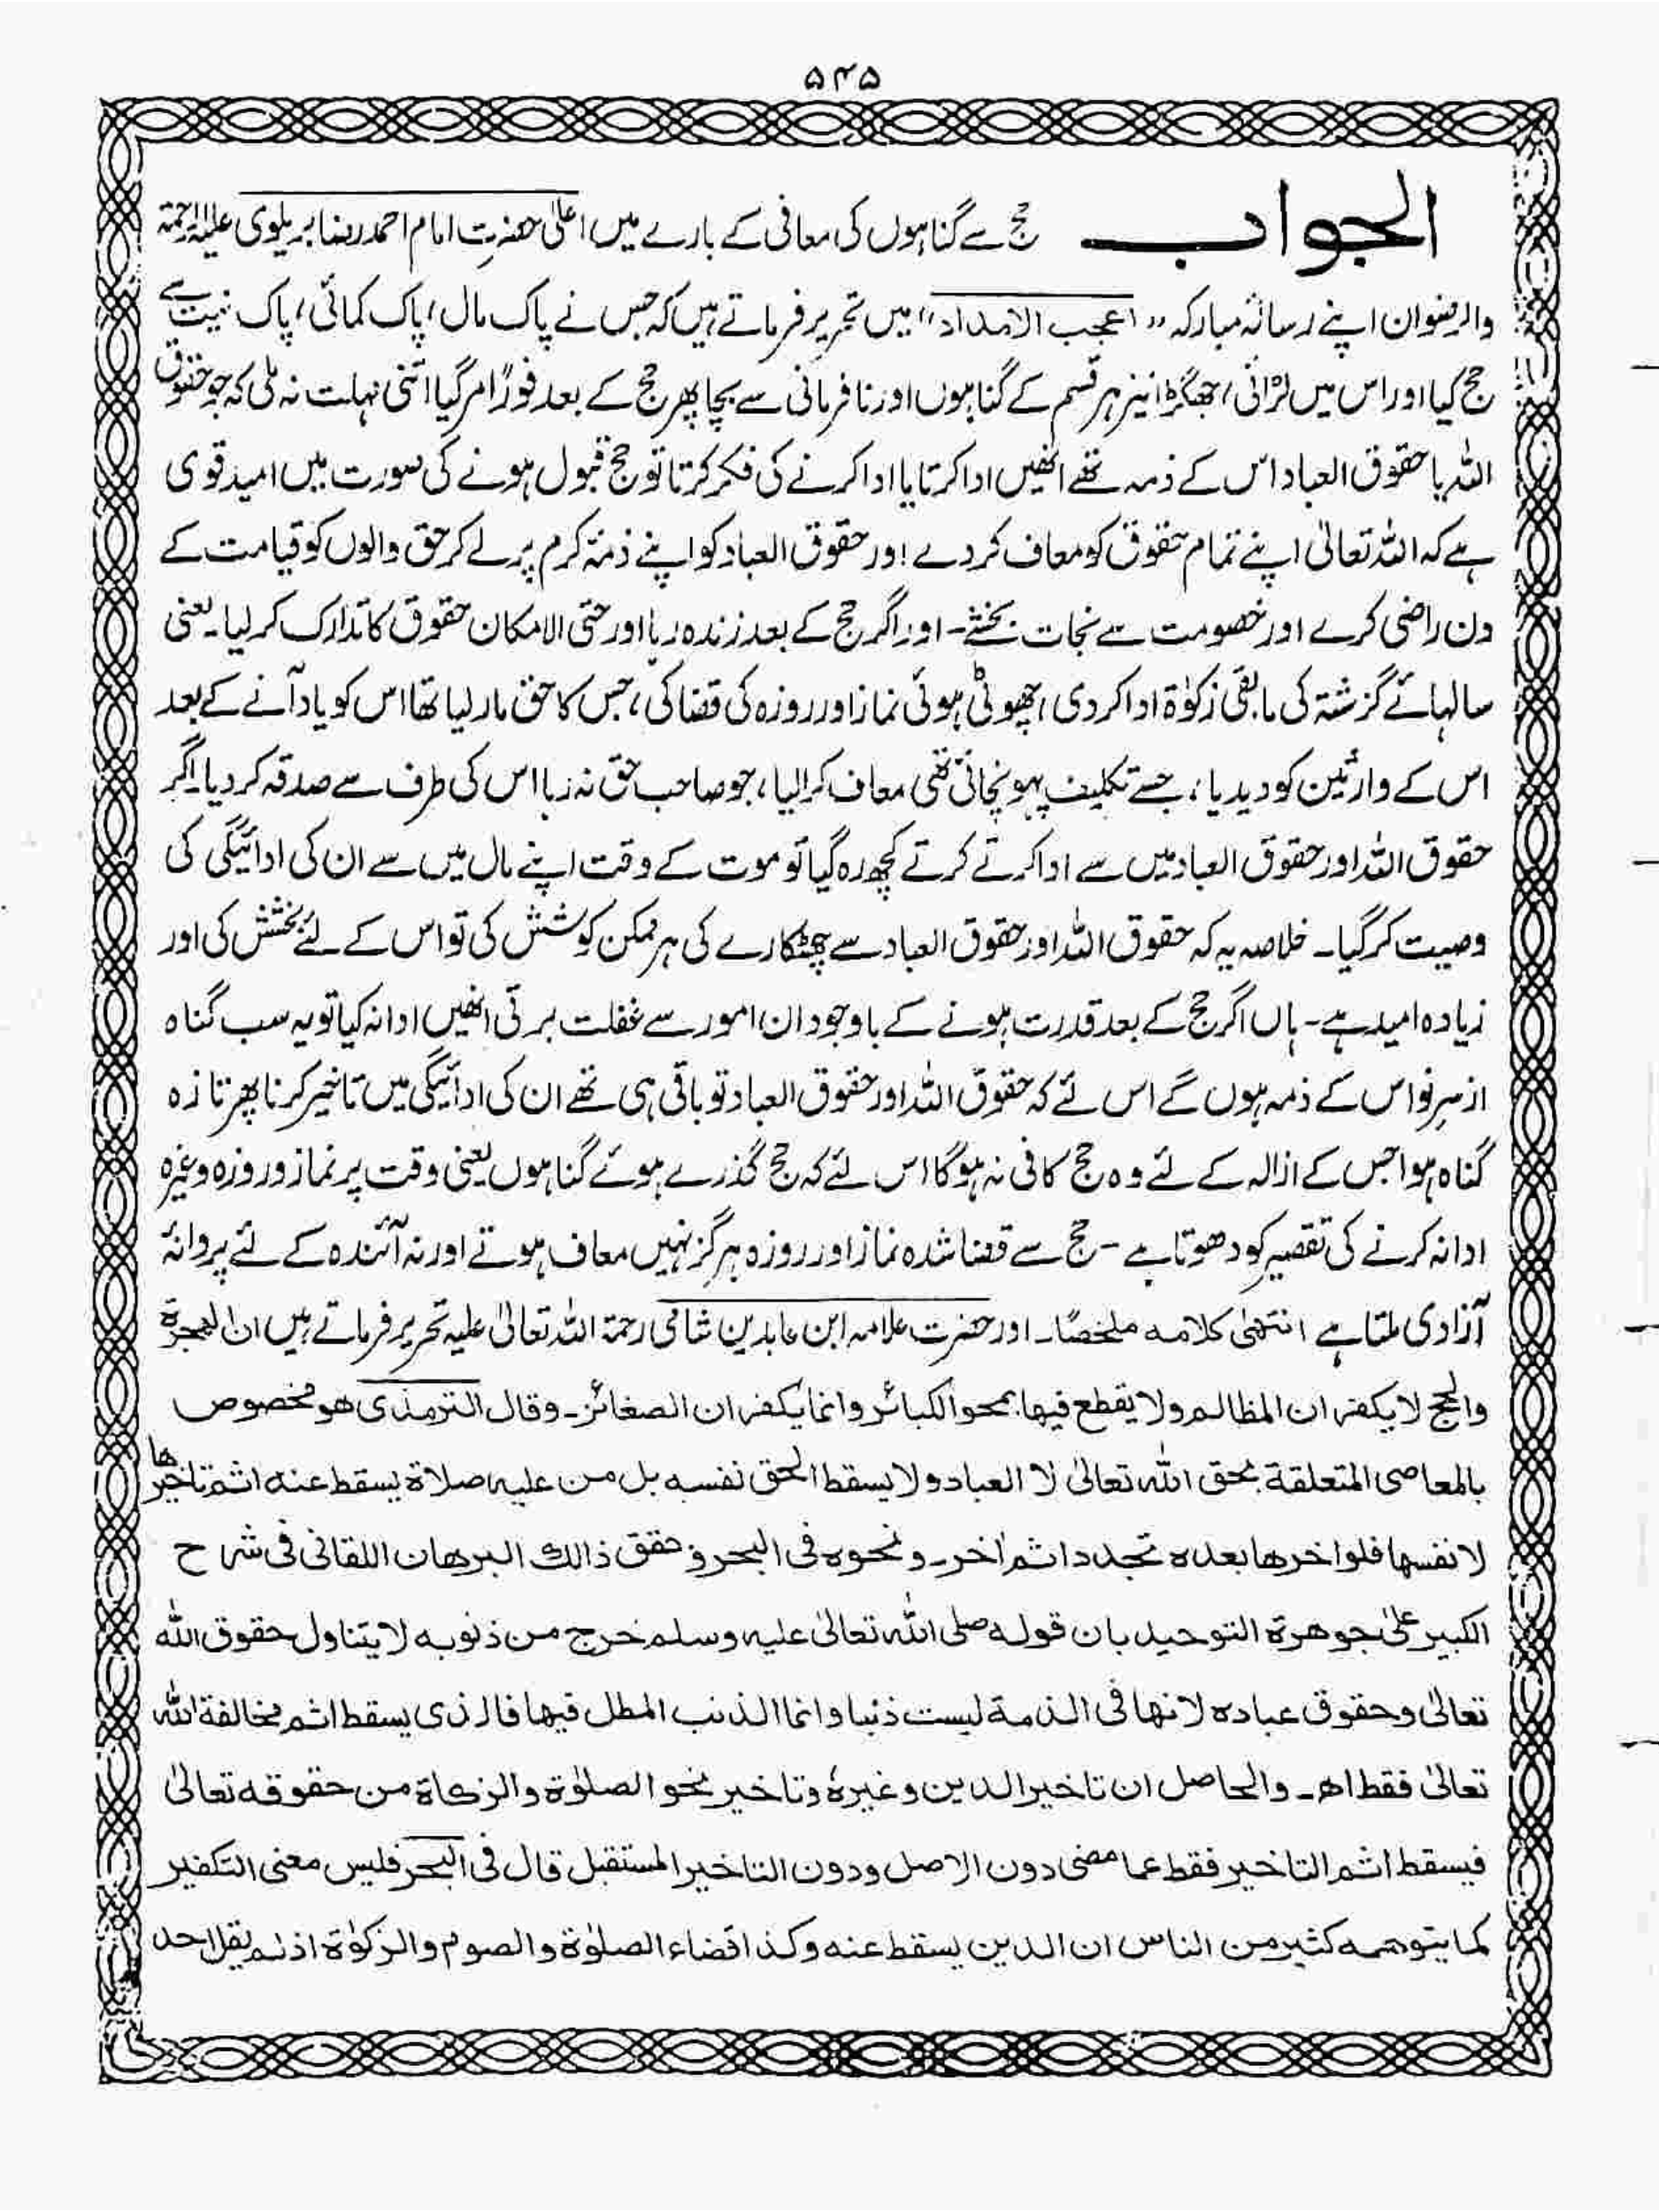 ۵۴۵
الجواب حج سے گناہوں کی معافی کے بارے میں اعلیٰ حضرت امام احمد رضا بریلوی علیہ الرحمۃ
والرضوان اپنے رسالۂ مبارکہ "اعجب الامداد" میں تحریر فرماتے ہیں کہ جس نے پاک مال، پاک کمائی، پاک نیت سے
حج کیا اور اس میں لڑائی، جھگڑا نیز ہر قسم کے گناہوں اور نافرمانی سے بچا پھر حج کے بعد فوراً مر گیا اتنی مہلت نہ ملی کہ جو حقوق
اللہ یا حقوق العباد اس کے ذمہ تھے انھیں ادا کرتا یا ادا کرنے کی فکر کرتا تو حج قبول ہونے کی صورت میں امید قوی
ہے کہ اللہ تعالیٰ اپنے تمام حقوق کو معاف کر دے اور حقوق العباد کو اپنے ذمۂ کرم پر لے کر حق والوں کو قیامت کے
دن راضی کرے اور خصومت سے نجات بخشے۔ اور اگر حج کے بعد زندہ رہا اور حتی الامکان حقوق کا تدارک کر لیا۔ یعنی
سالہائے گزشتہ کی مابقی زکوٰۃ ادا کر دی، چھوٹی ہوئی نماز اور روزہ کی قضا کی، جس کا حق مار لیا تھا اس کو یاد آنے کے بعد
اس کے وارثین کو دیدیا، جسے تکلیف پہونچائی تھی معاف کرالیا، جو صاحب حق نہ رہا اس کی طرف سے صدقہ کر دیا۔ اگر
حقوق اللہ اور حقوق العباد میں سے ادا کرتے کرتے کچھ رہ گیا تو موت کے وقت اپنے مال میں سے ان کی ادائیگی کی
وصیت کر گیا۔ خلاصہ یہ کہ حقوق اللہ اور حقوق العباد سے چھٹکارے کی ہر ممکن کوشش کی تو اس کے لئے بخشش کی اور
زیادہ امید ہے۔ ہاں اگر حج کے بعد قدرت ہونے کے باوجود ان امور سے غفلت برتی انھیں ادا نہ کیا تو یہ سب گناہ
از سرِ نو اس کے ذمہ ہوں گے اس لئے کہ حقوق اللہ اور حقوق العباد تو باقی ہی تھے ان کی ادائیگی میں تاخیر کرنا پھر تازہ
گناہ ہوا جس کے ازالہ کے لئے وہ حج کافی نہ ہوگا اس لئے کہ حج گذرے ہوئے گناہوں یعنی وقت پر نماز و روزہ وغیرہ
ادا نہ کرنے کی تقصیر کو دھوتا ہے۔ حج سے قضا شدہ نماز اور روزہ ہرگز نہیں معاف ہوتے اور نہ آئندہ کے لئے پروانۂ
آزادی ملتا ہے انتھیٰ کلامہ ملخصًا۔ اور حضرت علامہ ابن عابدین شامی رحمۃ اللہ تعالیٰ علیہ تحریر فرماتے ہیں ان الھجرۃ
والحج لا یکفران المظالم ولا یقطع فیھا بمحو الکبائر وانما یکفران الصغائر۔ وقال الترمذی ھو مخصوص
بالمعاصی المتعلقة بحق اللہ تعالیٰ لا العباد ولا یسقط الحق نفسہ بل من علیہ صلاۃ یسقط عنہ اثم تاخیرھا
لا نفسھا فلو اخرھا بعدہ تجدد اثم اٰخر۔ ونحوہ فی البحر وحقق ذالك البرھان اللقانی فی شرح
الکبیر علیٰ جوھرۃ التوحید بان قولہ صلی اللہ تعالیٰ علیہ وسلم خرج من ذنوبہ لا یتناول حقوق اللہ
تعالیٰ وحقوق عبادہ لانھا فی الذمۃ لیست ذنبا وانما الذنب المطل فیھا فالذی یسقط اثم مخالفۃ اللہ
تعالیٰ فقط اھ۔ والحاصل ان تاخیر الدین وغیرہ وتاخیر نحو الصلوٰۃ والزکاۃ من حقوقہ تعالیٰ
فیسقط اثم التاخیر فقط عما مضی دون الاصل ودون التاخیر المستقبل قال فی البحر فلیس معنی التکفیر
کما یتوھمہ کثیر من الناس ان الدین یسقط عنہ وکذا قضاء الصلوٰۃ والصوم والزکوٰۃ اذ لم یقل احد